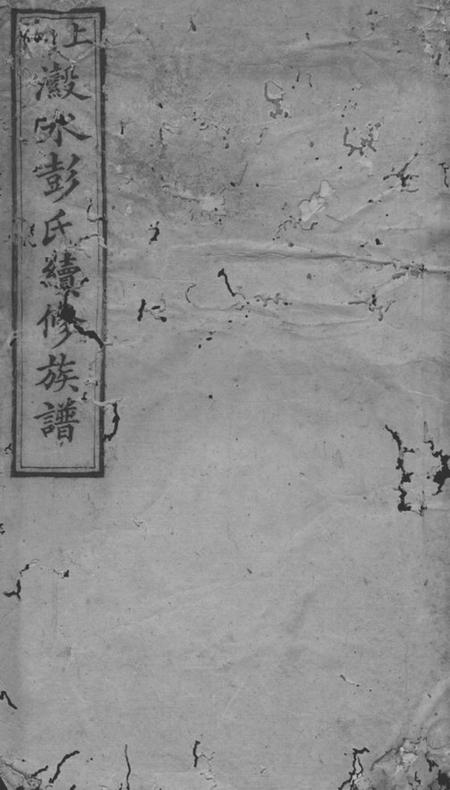 上
瀔水彭氏續修族譜